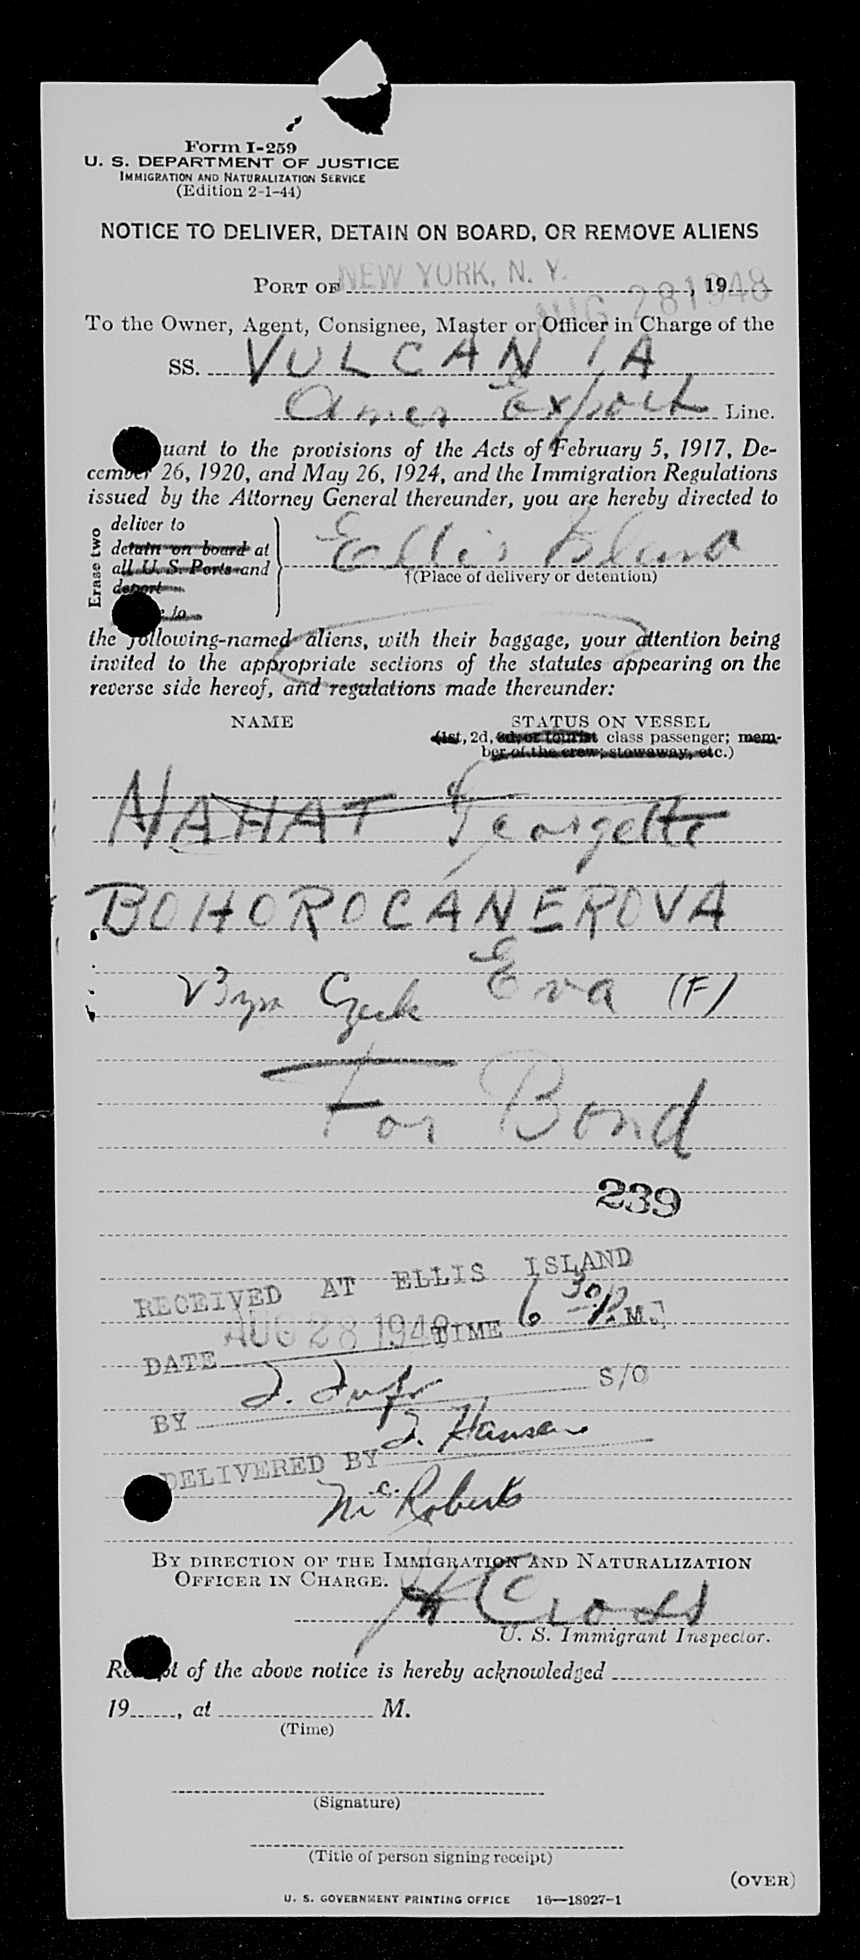 Form I-259
U. S. DEPARTMENT OF JUSTICE
IMMIGRATION AND NATURALIZATION SERVICE
(Edition 2-1-44)
NOTICE TO DELIVER, DETAIN ON BOARD, OR REMOVE ALIENS
PORT OF NEW YORK, N. Y. , 19
AUG 28 1948
To the Owner, Agent, Consignee, Master or Officer in Charge of the
SS. VULCANIA
Amer Export Line.
uant to the provisions of the Acts of February 5, 1917, De-
cember 26, 1920, and May 26, 1924, and the Immigration Regulations
issued by the Attorney General thereunder, you are hereby directed to
Erase two
deliver to
detain on board at
all U. S. Ports and
deport
to
Ellis Island
†(Place of delivery or detention)
the following-named aliens, with their baggage, your attention being
invited to the appropriate sections of the statutes appearing on the
reverse side hereof, and regulations made thereunder:
NAME STATUS ON VESSEL
(1st, 2d, 3d, or tourist class passenger; mem-
ber of the crew; stowaway, etc.)
NAHAT Georgette
BOHOROCANEROVA
Czech Eva (F)
For Bond
239
RECEIVED AT ELLIS ISLAND
DATE AUG 28 1948 TIME 6 30 P. M.
BY S/O
DELIVERED BY J. Hansen
McRoberts
BY DIRECTION OF THE IMMIGRATION AND NATURALIZATION
OFFICER IN CHARGE.
U. S. Immigrant Inspector.
Receipt of the above notice is hereby acknowledged
19 , at M.
(Time)
(Signature)
(Title of person signing receipt)
(OVER)
U. S. GOVERNMENT PRINTING OFFICE 16—18927-1